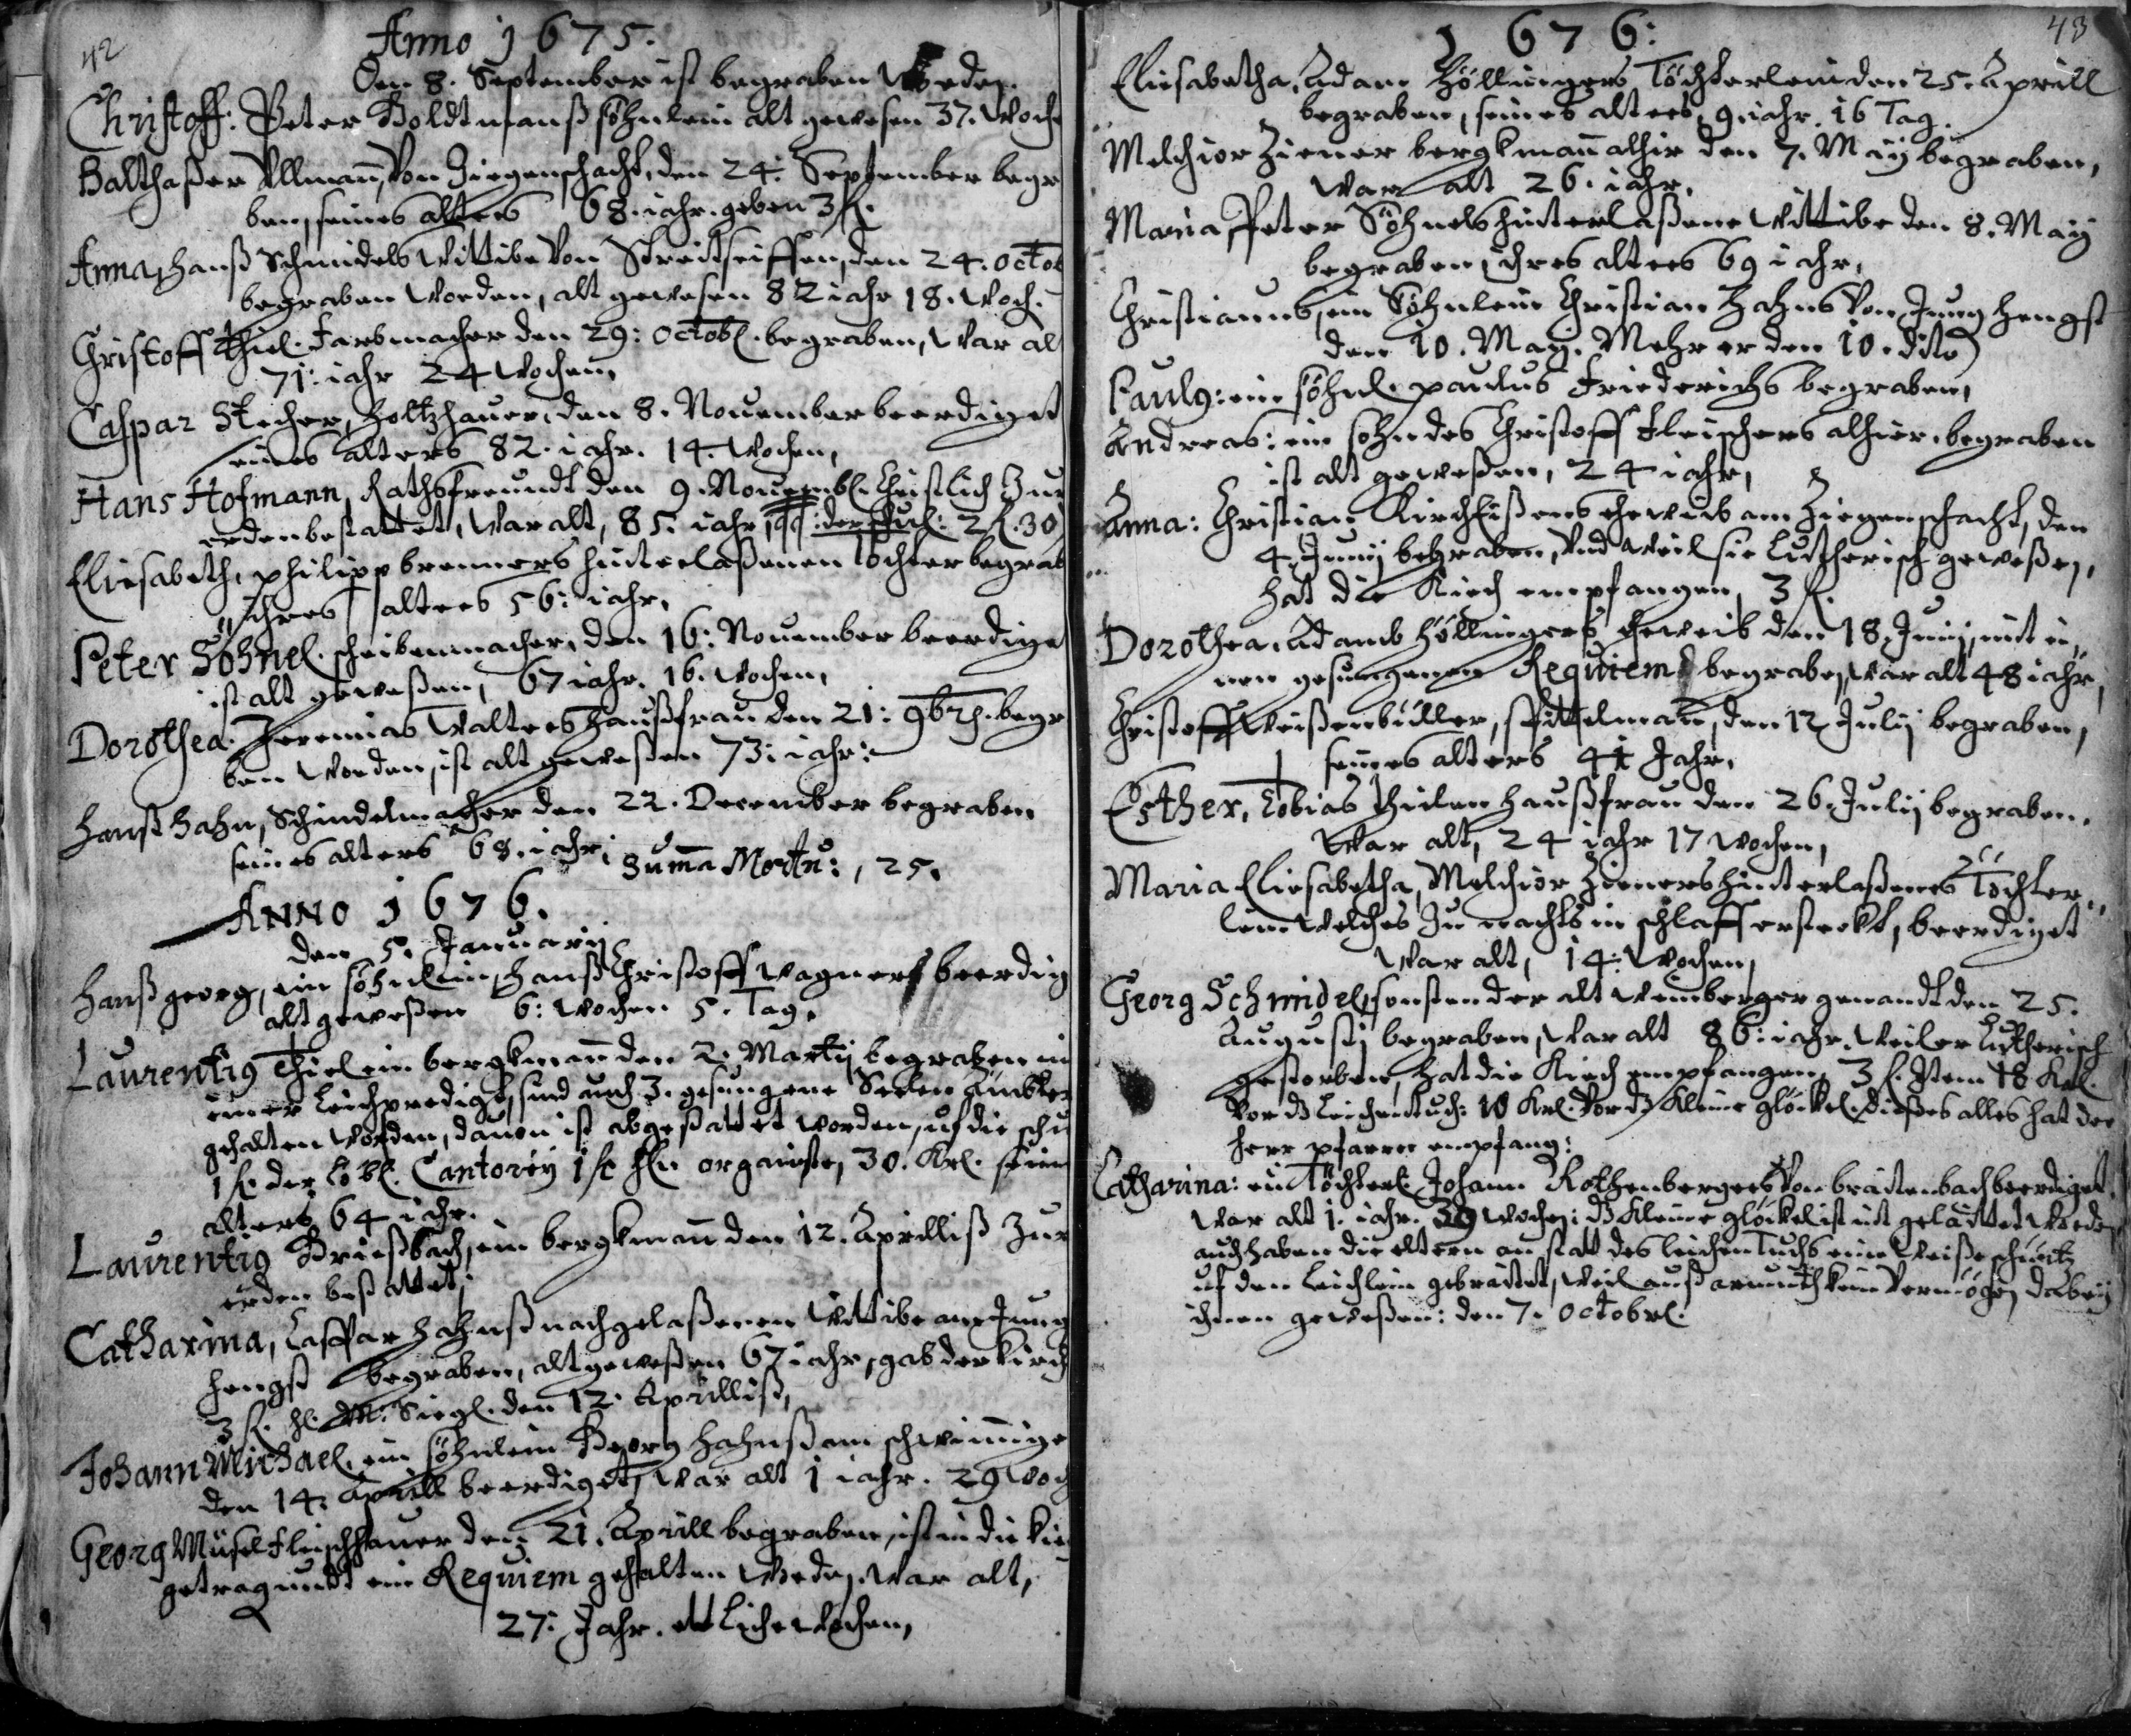 42
Anno 1675.
Den 8. September ist begraben worden.
Christoff: Peter Goldtmanß söhnlein alt gewesen 37. Woch
Balthaßer Ullman̄, Von Ziegenschacht, den 24. September begr
ben, seines alters 68. iahr. geben 3 fl.
Anna, Hanß Schmidels Wittibe Von Streitseiffen, den 24. octob
begraben worden, alt gewesen 82 iahr 18. woch.
Christoff Thiel. Farbmacher den 29: octobl. begraben, war al
71: iahr 24 wochen,
Caspar Stecher, Holtzhauer, den 8. November beerdiget
seines alters 82. iahr. 14. wochen,
Hans Hofmann, Rathsfreundt den 9. Novembl. Christlich Zur
erden bestattet, war alt, 85. iahr, der schul: 2 fl. 30
Eliesabeth, philipp brenners hinterlaßenen tochter begrab
ihres alters 56: iahr,
Peter Söhnel. scheibenmacher, den 16: November beerdige
ist alt geweßen, 67 iahr. 16. wochen,
Dorothea: Jeremias Walters Haußfrau den 21: 9br. begr
ben worden, ist alt geweßen 73: iahr:
Hanß Hahn, Schindelmacher den 22. December begraben
seines alters 68. iahr; Sum̄a Mortu: , 25.
ANNO 1676.
den 5. Januarij
Hanß georg, ein söhnlein, Hanß Christoff wagners beerdig
alt geweßen 6: wochen 5. Tag.
Laurentig Thiel ein bergkman̄ den 2. Martij begraben mi
einer Leichpredigt, sind auch 3. gesungene Seelen Ämbter
gehalten worden, davon ist abgestattet worden, uf die schu
1 fl. der Löbl. Cantorey 1 fl Hln organiste, 30. Krl. seines
alters 64 iahr.
Laurentig Grießbach, ein bergkman̄ den 12. Aprilliß Zur
erden bestattet;
Catharina, Casspar Hahnß nachgelaßenen Wittibe am Jung
hengst begraben, alt geweßen 67 iahr, gab der kirch
3 fl. H. M: Siegl. den 12. Aprilliß,
Johann Michael, ein söhnlein Georg Hahnß am schwim̄ige
den 14: Aprill beerdiget, war alt 1 iahr. 29 woch
Georg Müsel Fleischhauer den 21. Aprill begraben, ist in die kir
getragen undt ein Requiem gehalten worden. war alt,
27: Jahr. ettliche wochen,
43
1676:
Eliesabetha, Adam Höllingers Töchterlein den 25. Aprill
begraben, seines alters, 9. iahr. 16 Tag.
Melchior Ziener bergkman̄ alhir den 7. Maij begraben,
war alt 26. iahr,
Maria, Peter Söhnels hinterlaßene Wittibe den 8. Maij
begraben, ihres alters 69 iahr,
Christianus, ein Söhnlein Christian Hahns Von Jung hengst
den 10. Maij. Mehr er den 10. dito
Paulg: ein söhnl. paulus Friederichs begraben,
Andreas: ein sohn des Christoff Fleischers alhier, begraben
ist alt geweßen, 24 iahr,
Anna: Christian Kirchlißens eheweib am Ziegenschacht, den
4. Junij begraben, und weil sie Lutherisch geweßen,
hat die Kirch empfangen 3 fl.
Dorothea: Adamb Höllingers eheweib den 18. Junij, mit ei„
nen gesungenen Requiem begraben, war alt 48 iahr,
Christoff Weißenbüller, Spittelman̄, den 12 Julij begraben,
seines alters 41 Jahr,
Esther, Tobias Thielen Haußfrau den 26. Julij begraben,
War alt, 24 iahr 17 wochen,
Maria Eliesabetha, Melchior Zieners hinterlaßenes Töchter„
lein welches Zu nachts in schlaff ersteckt, beerdiget
War alt, 14: Wochen,
Georg Schmidel, sonsten der alt Vemberger genandt den 25.
Augustj begraben, war alt 86: iahr. weil er Lutherisch
gestorben, hat die Kirch empfangen, 3 fl. Item 18 Krl.
Vor dz Leichentuch: 10 Krl. Vor dz kleine glöckel. dießes alles hat der
Herr pfarrer empfang:
Catharina: ein Töchterl. Johann Rothenbergers Von breitenbach beerdiget,
War alt 1. iahr. 39 wochen: dz kleine glöckel ist nit geläüttet worden
auch haben die eltern an statt des leichen tuchs eine weiße schürtz
uf dem Leichlein gebreittet, weil auß armuth kein Vermögen dabeij
ihnen geweßen: den 7. octobrl.